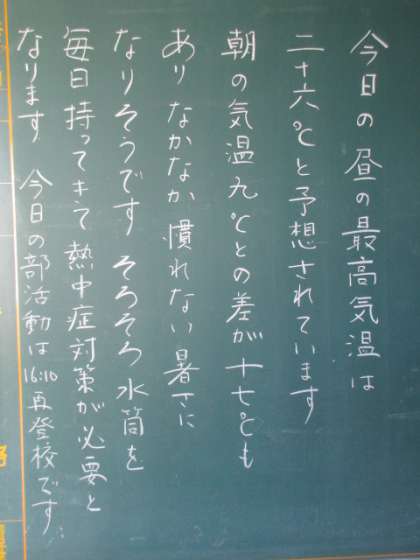 今日の昼の最高気温は
二十六℃と予想されています
朝の気温九℃との差が十七℃も
ありなかなか慣れない暑さに
なりそうですそろそろ水筒を
毎日持ってきて熱中症対策が必要と
なります今日の部活動は16:10再登校です